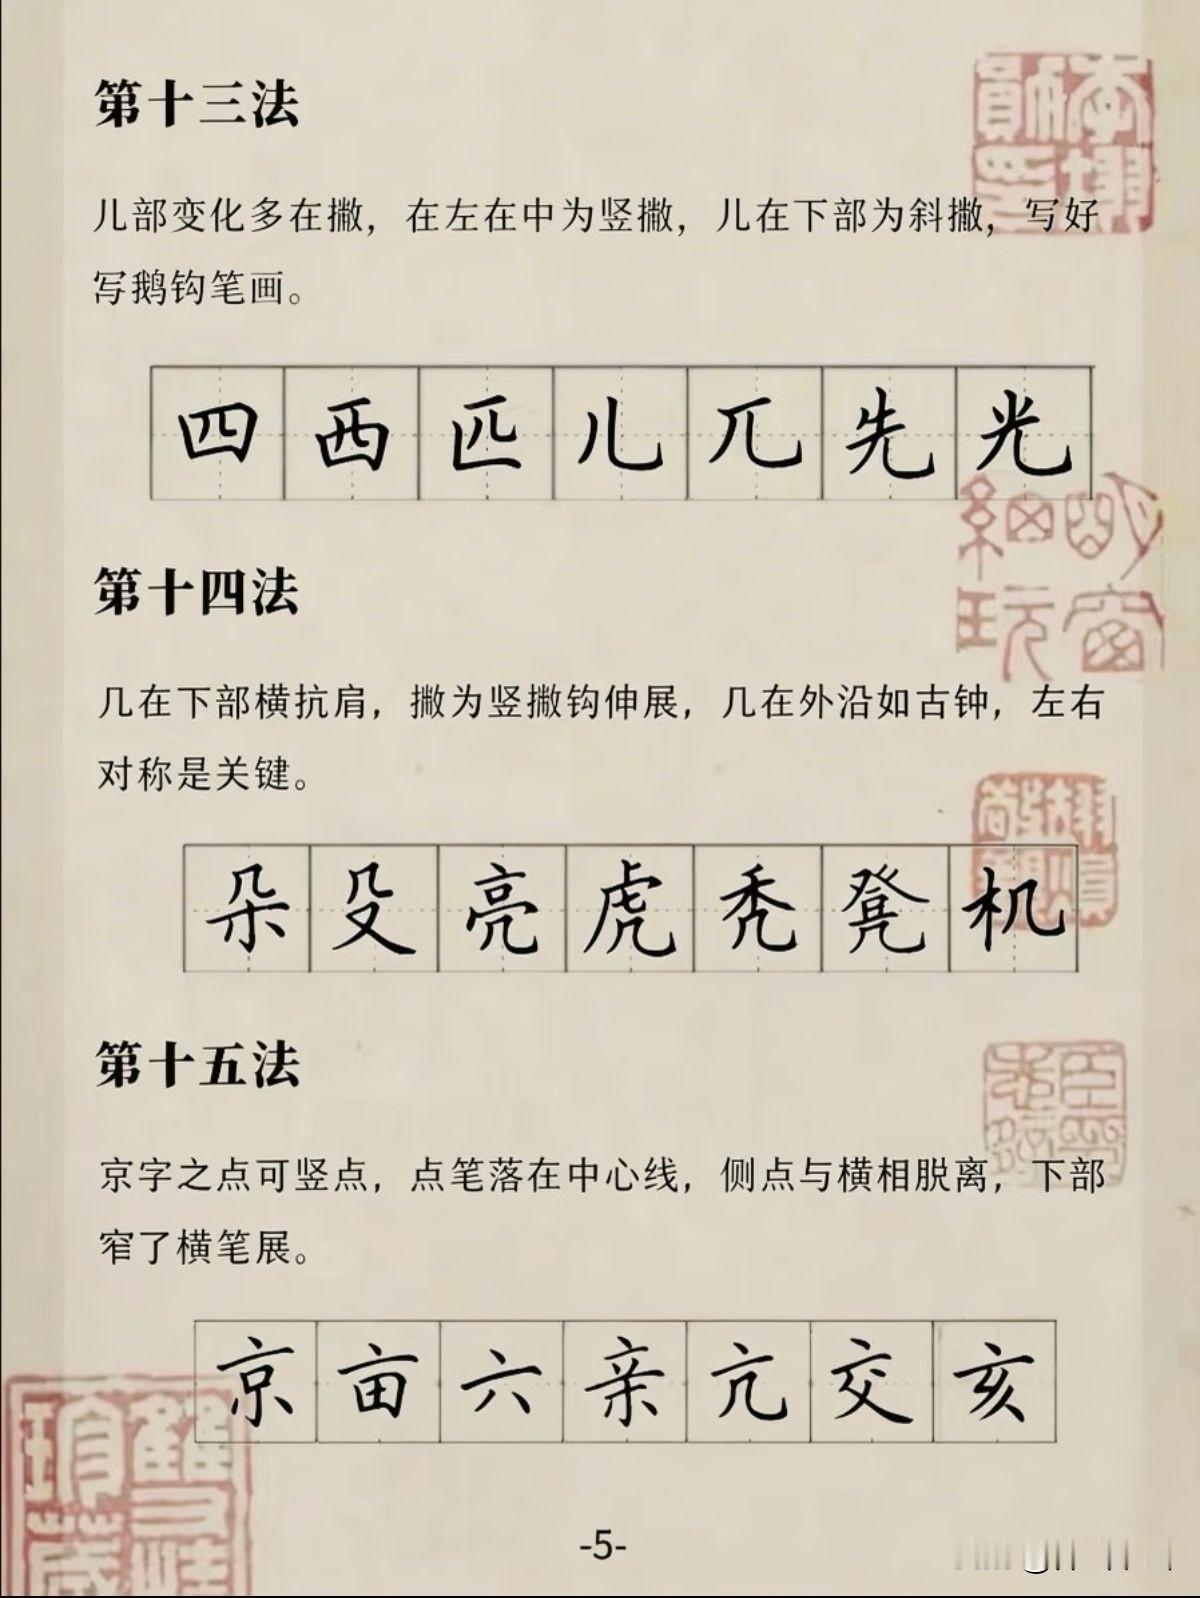 第十三法
儿部变化多在撇，在左在中为竖撇，儿在下部为斜撇，写好
写鹅钩笔画。
四西匹儿兀先光
第十四法
几在下部横抗肩，撇为竖撇钩伸展，几在外沿如古钟，左右
对称是关键。
朵殳亮虎秃凳机
第十五法
京字之点可竖点，点笔落在中心线，侧点与横相脱离，下部
窄了横笔展。
京亩六亲亢交亥
-5-